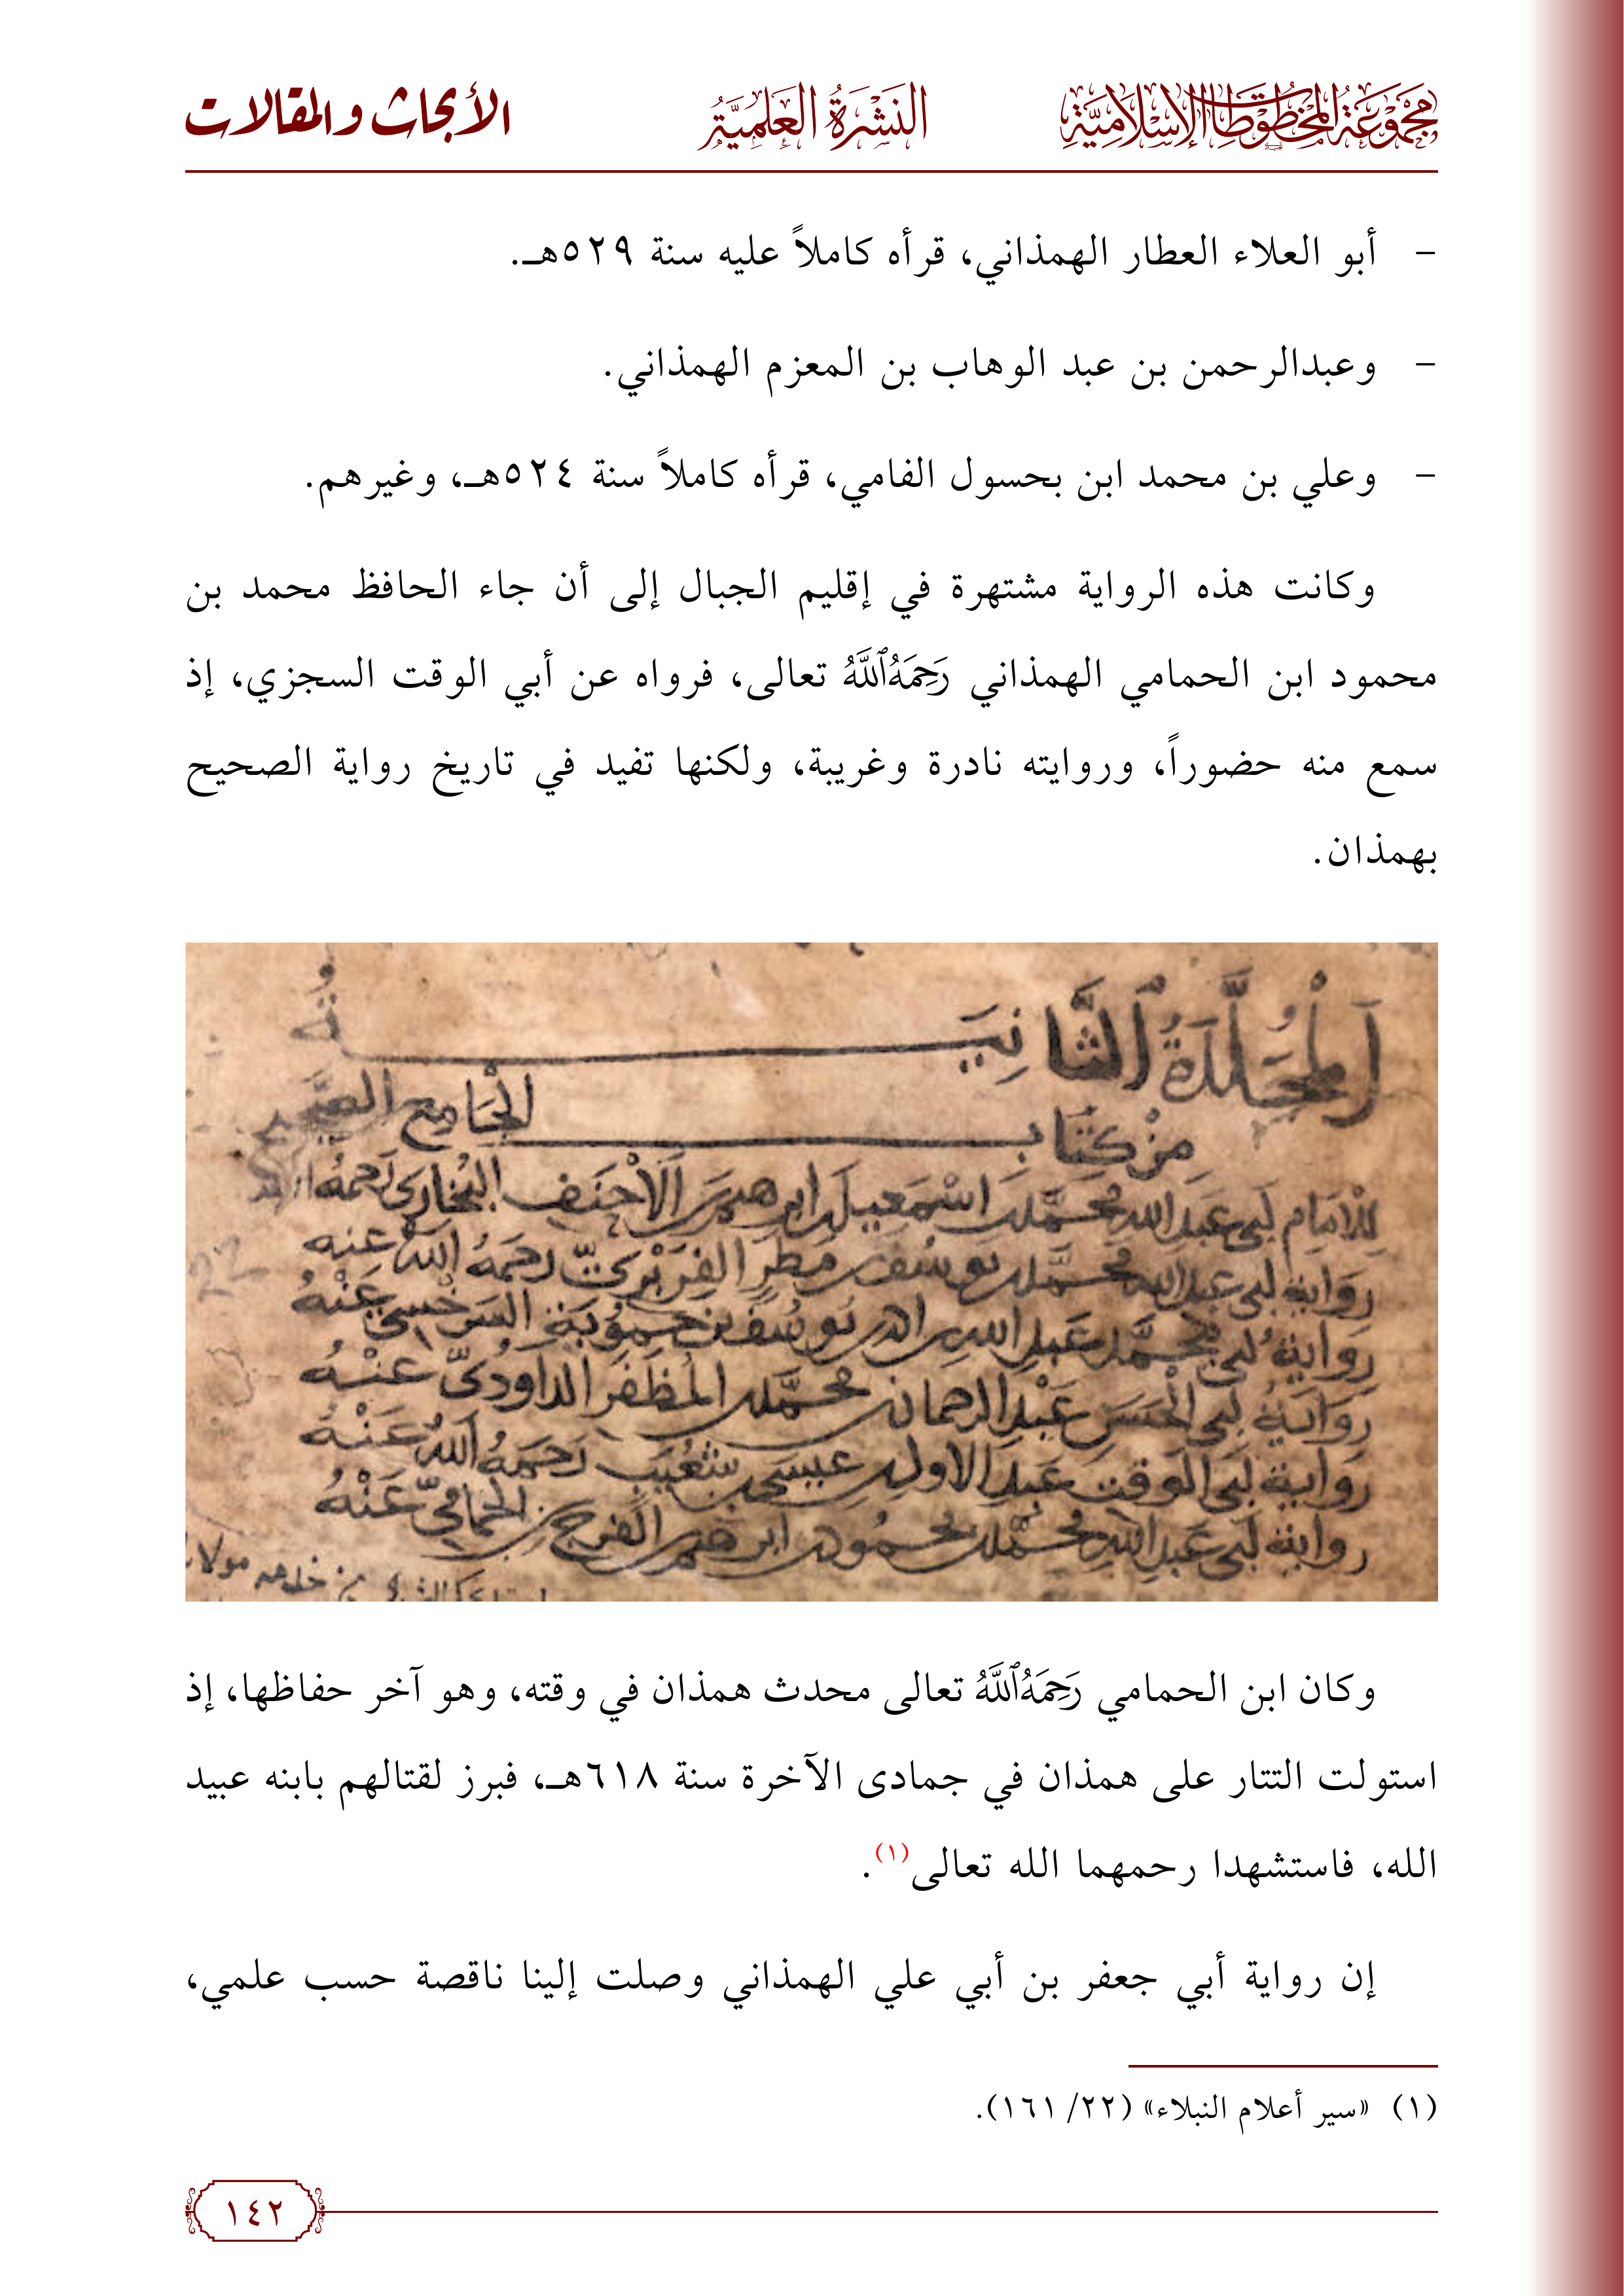 مجموعة المخطوطات الإسلامية
النشرة العلمية
الأبحاث والمقالات
- أبو العلاء العطار الهمذاني، قرأه كاملاً عليه سنة ٥٢٩هـ.
- وعبدالرحمن بن عبد الوهاب بن المعزم الهمذاني.
- وعلي بن محمد ابن بحسول الفامي، قرأه كاملاً سنة ٥٢٤هـ، وغيرهم.
وكانت هذه الرواية مشتهرة في إقليم الجبال إلى أن جاء الحافظ محمد بن
محمود ابن الحمامي الهمذاني رَحِمَهُ ٱللَّهُ تعالى، فرواه عن أبي الوقت السجزي، إذ
سمع منه حضوراً، وروايته نادرة وغريبة، ولكنها تفيد في تاريخ رواية الصحيح
بهمذان.
المجلدة الثانية
من كتاب الجامع الصحيح
للامام ابي عبد الله محمد بن اسمعيل بن ابرهيم بن الاحنف البخاري رحمه الله
رواية ابي عبد الله محمد بن يوسف بن مطر الفربري رحمه الله عنه
رواية ابي محمد عبد الله بن احمد بن يوسف بن حمويه السرخسي عنه
رواية ابي الحسن عبد الرحمان بن محمد بن المظفر الداودي عنه
رواية ابي الوقت عبد الاول بن عيسى بن شعيب رحمه الله عنه
رواية ابي عبد الله محمد بن محمود بن ابرهيم بن الفرج بن الحمامي عنه
وكان ابن الحمامي رَحِمَهُ ٱللَّهُ تعالى محدث همذان في وقته، وهو آخر حفاظها، إذ
استولت التتار على همذان في جمادى الآخرة سنة ٦١٨هـ، فبرز لقتالهم بابنه عبيد
الله، فاستشهدا رحمهما الله تعالى(١).
إن رواية أبي جعفر بن أبي علي الهمذاني وصلت إلينا ناقصة حسب علمي،
(١) «سير أعلام النبلاء» (٢٢/ ١٦١).
١٤٢